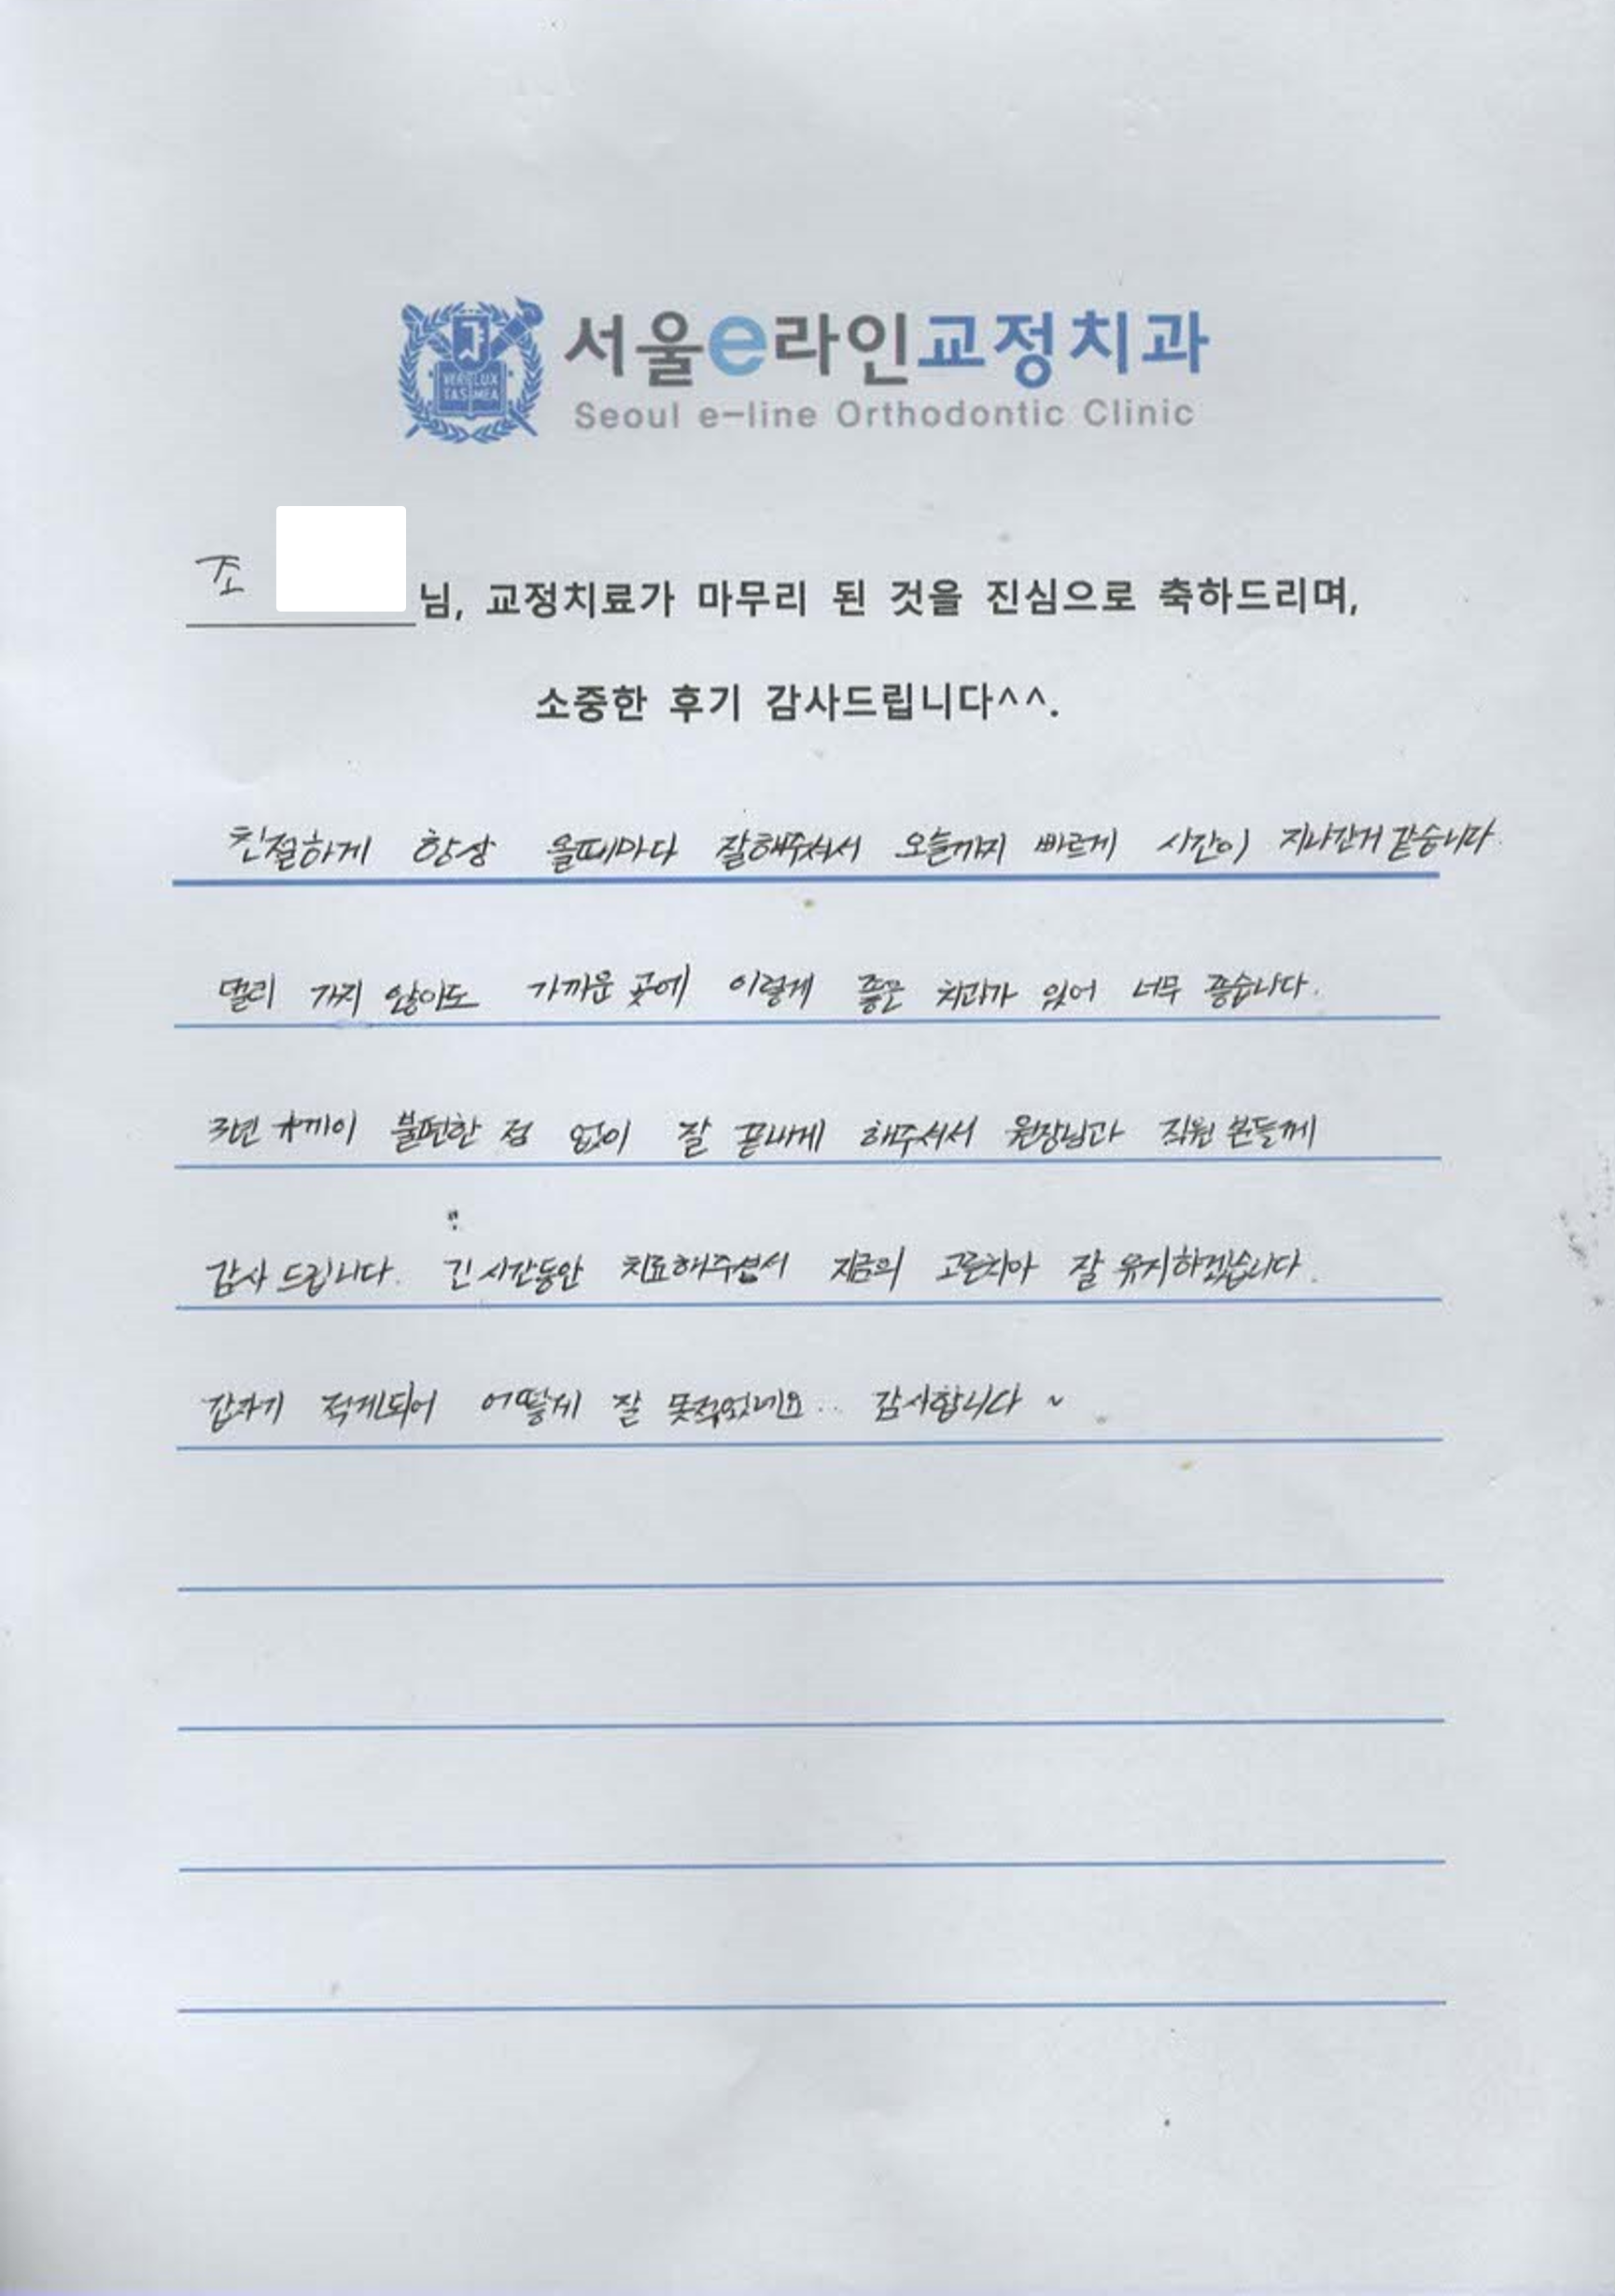 서울e라인교정치과
Seoul e-line Orthodontic Clinic
VERI LUX
TAS MEA
조
님, 교정치료가 마무리 된 것을 진심으로 축하드리며,
소중한 후기 감사드립니다^^.
친절하게 항상 올때마다 잘해주셔서 오늘까지 빠르게 시간이 지나간거 같습니다.
멀리 가지 않아도 가까운 곳에 이렇게 좋은 치과가 있어 너무 좋습니다.
3년 불편한 점 없이 잘 끝내게 해주셔서 원장님과 직원 분들께
감사 드립니다. 긴 시간동안 치료해주셔서 지금의 고른치아 잘 유지하겠습니다.
갑자기 적게되어 어떻게 잘 못적었네요... 감사합니다 ~